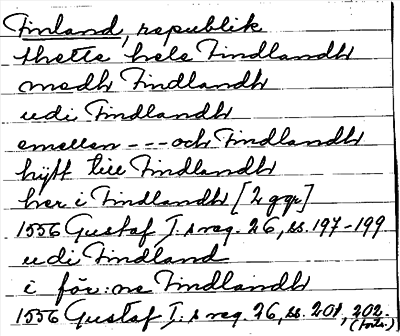 Finland, republik
thette hele Findlandh
medh Findlandh
udi Findlandh
emellen --- och Findlandh
hijtt till Findlandh
her i Findlandh [2 ggr]
1556 Gustaf I:s reg. 26, ss. 197-199
udi Findland
i för:ne Findlandh
1556 Gustaf I:s reg. 26, ss. 201, 202.
(forts.)